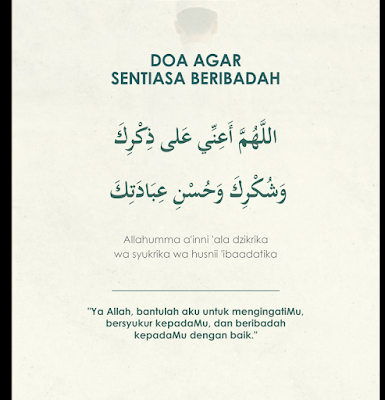 DOA AGAR
SENTIASA BERIBADAH
اللَّهُمَّ أَعِنِّي عَلى ذِكْرِكَ
وَشُكْرِكَ وَحُسْنِ عِبَادَتِكَ
Allahumma a'inni 'ala dzikrika
wa syukrika wa husnii 'ibaadatika
"Ya Allah, bantulah aku untuk mengingatiMu,
bersyukur kepadaMu, dan beribadah
kepadaMu dengan baik."